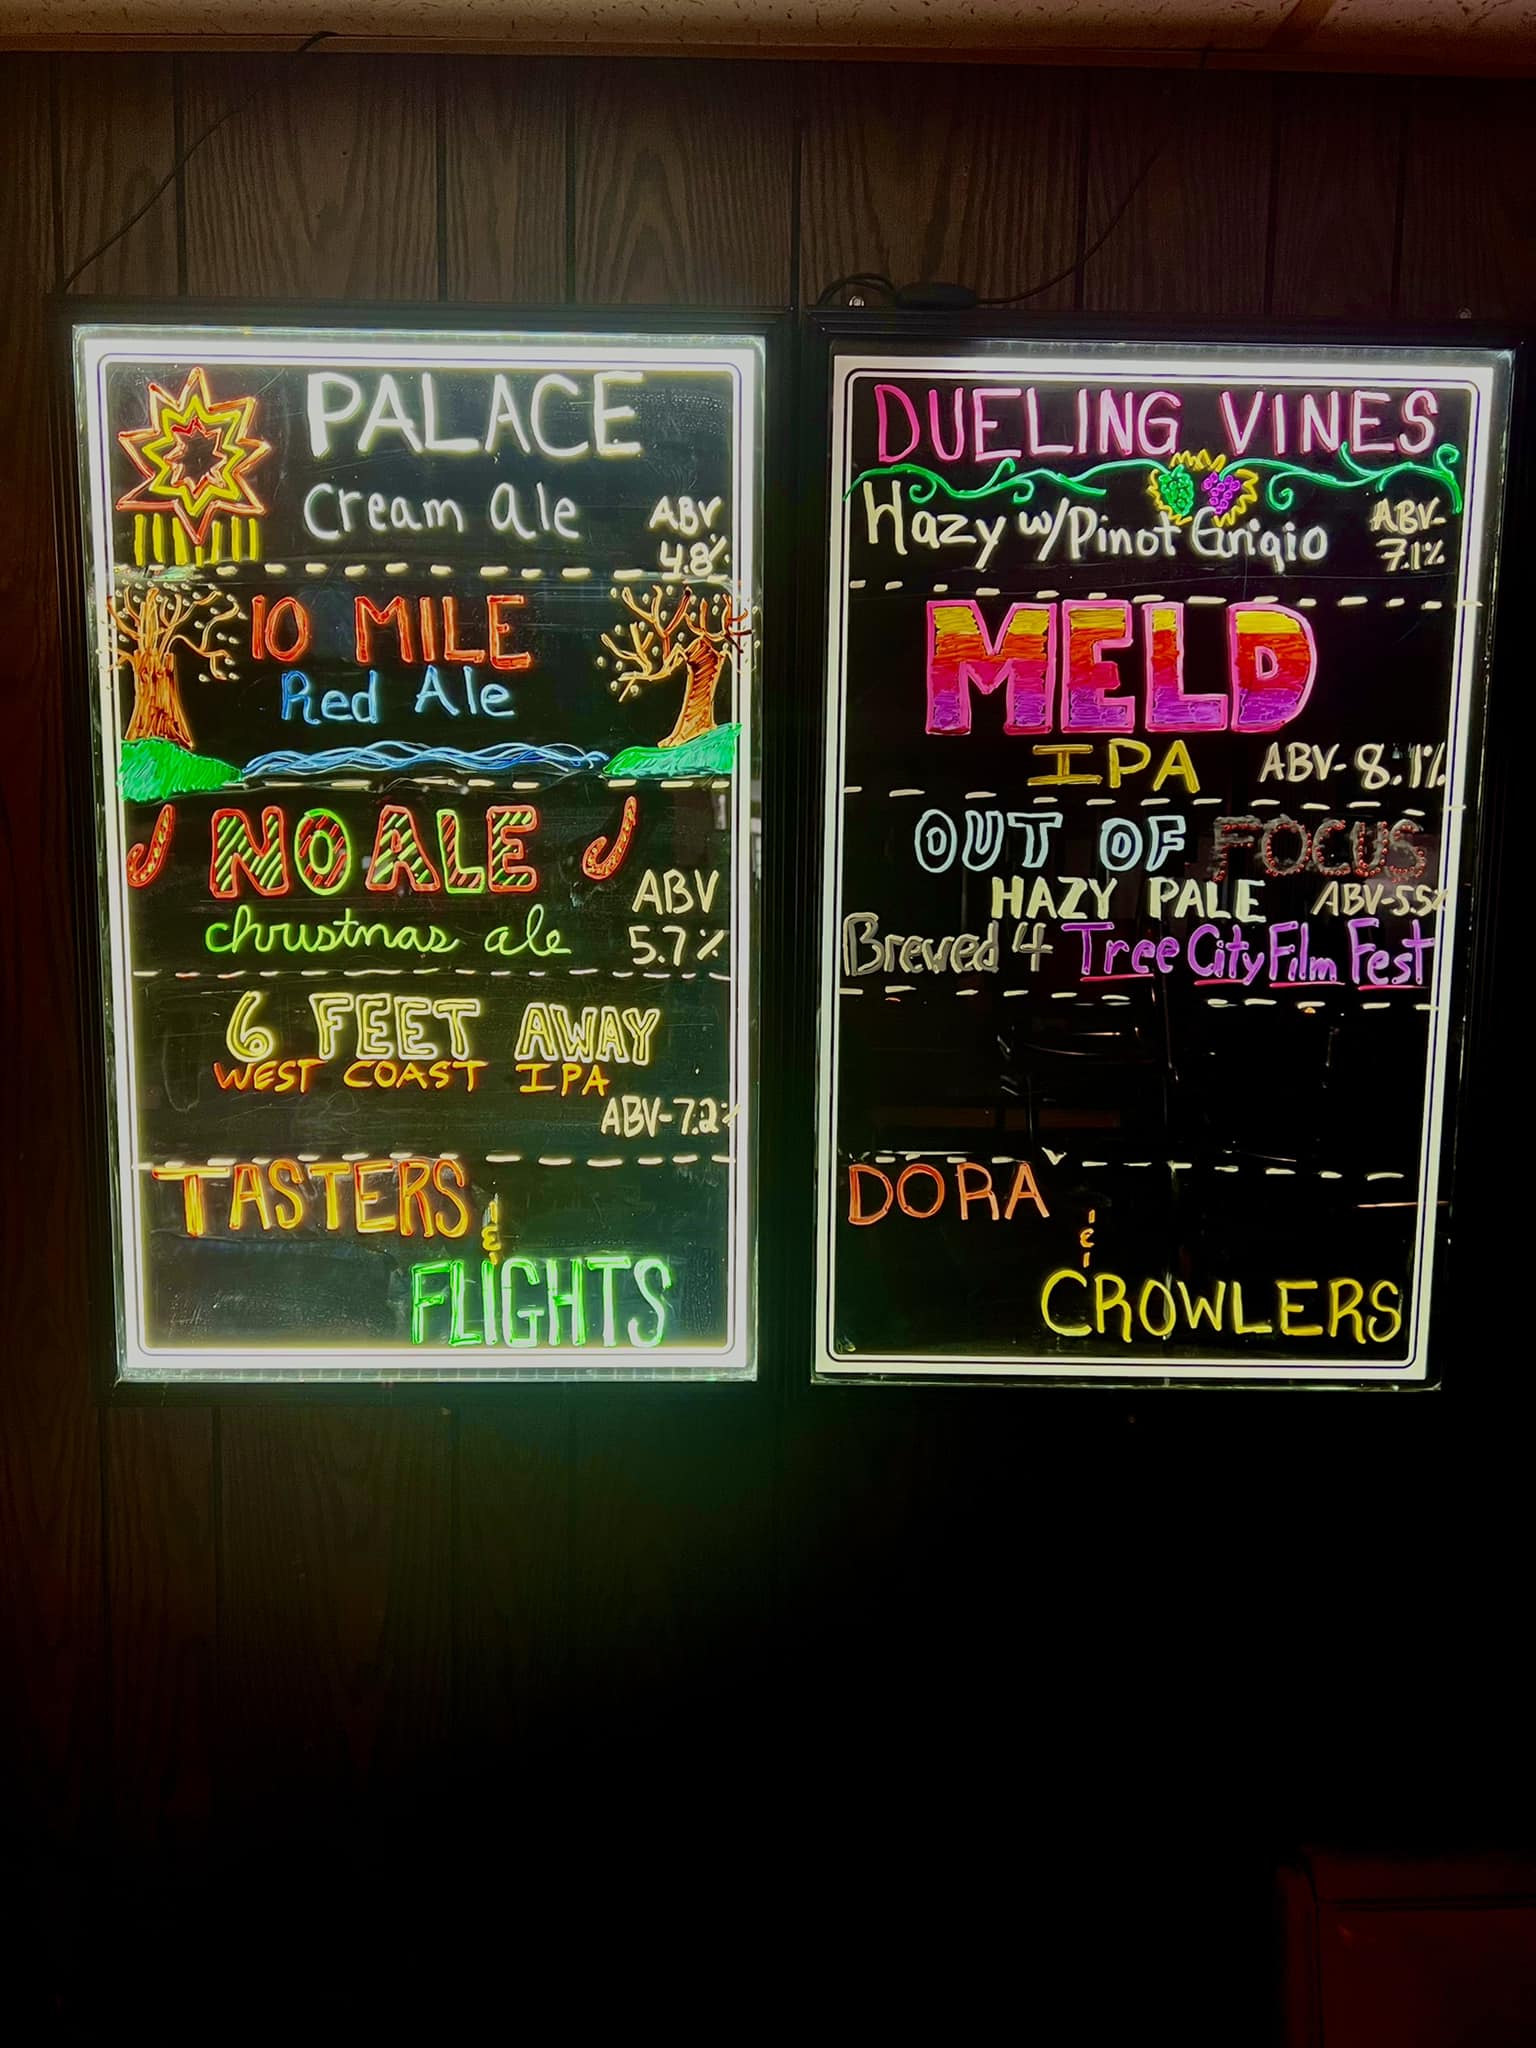 PALACE
Cream Ale
ABV
4.8%
10 MILE
Red Ale
NOALE
christmas ale
ABV
5.7%
6 FEET AWAY
WEST COAST IPA
ABV-7.2%
TASTERS
&
FLIGHTS
DUELING VINES
Hazy w/Pinot Grigio
ABV-
7.1%
MELD
IPA ABV-8.1%
OUT OF FOCUS
HAZY PALE ABV-5.5%
Brewed 4 Tree City Film Fest
DORA
&
CROWLERS